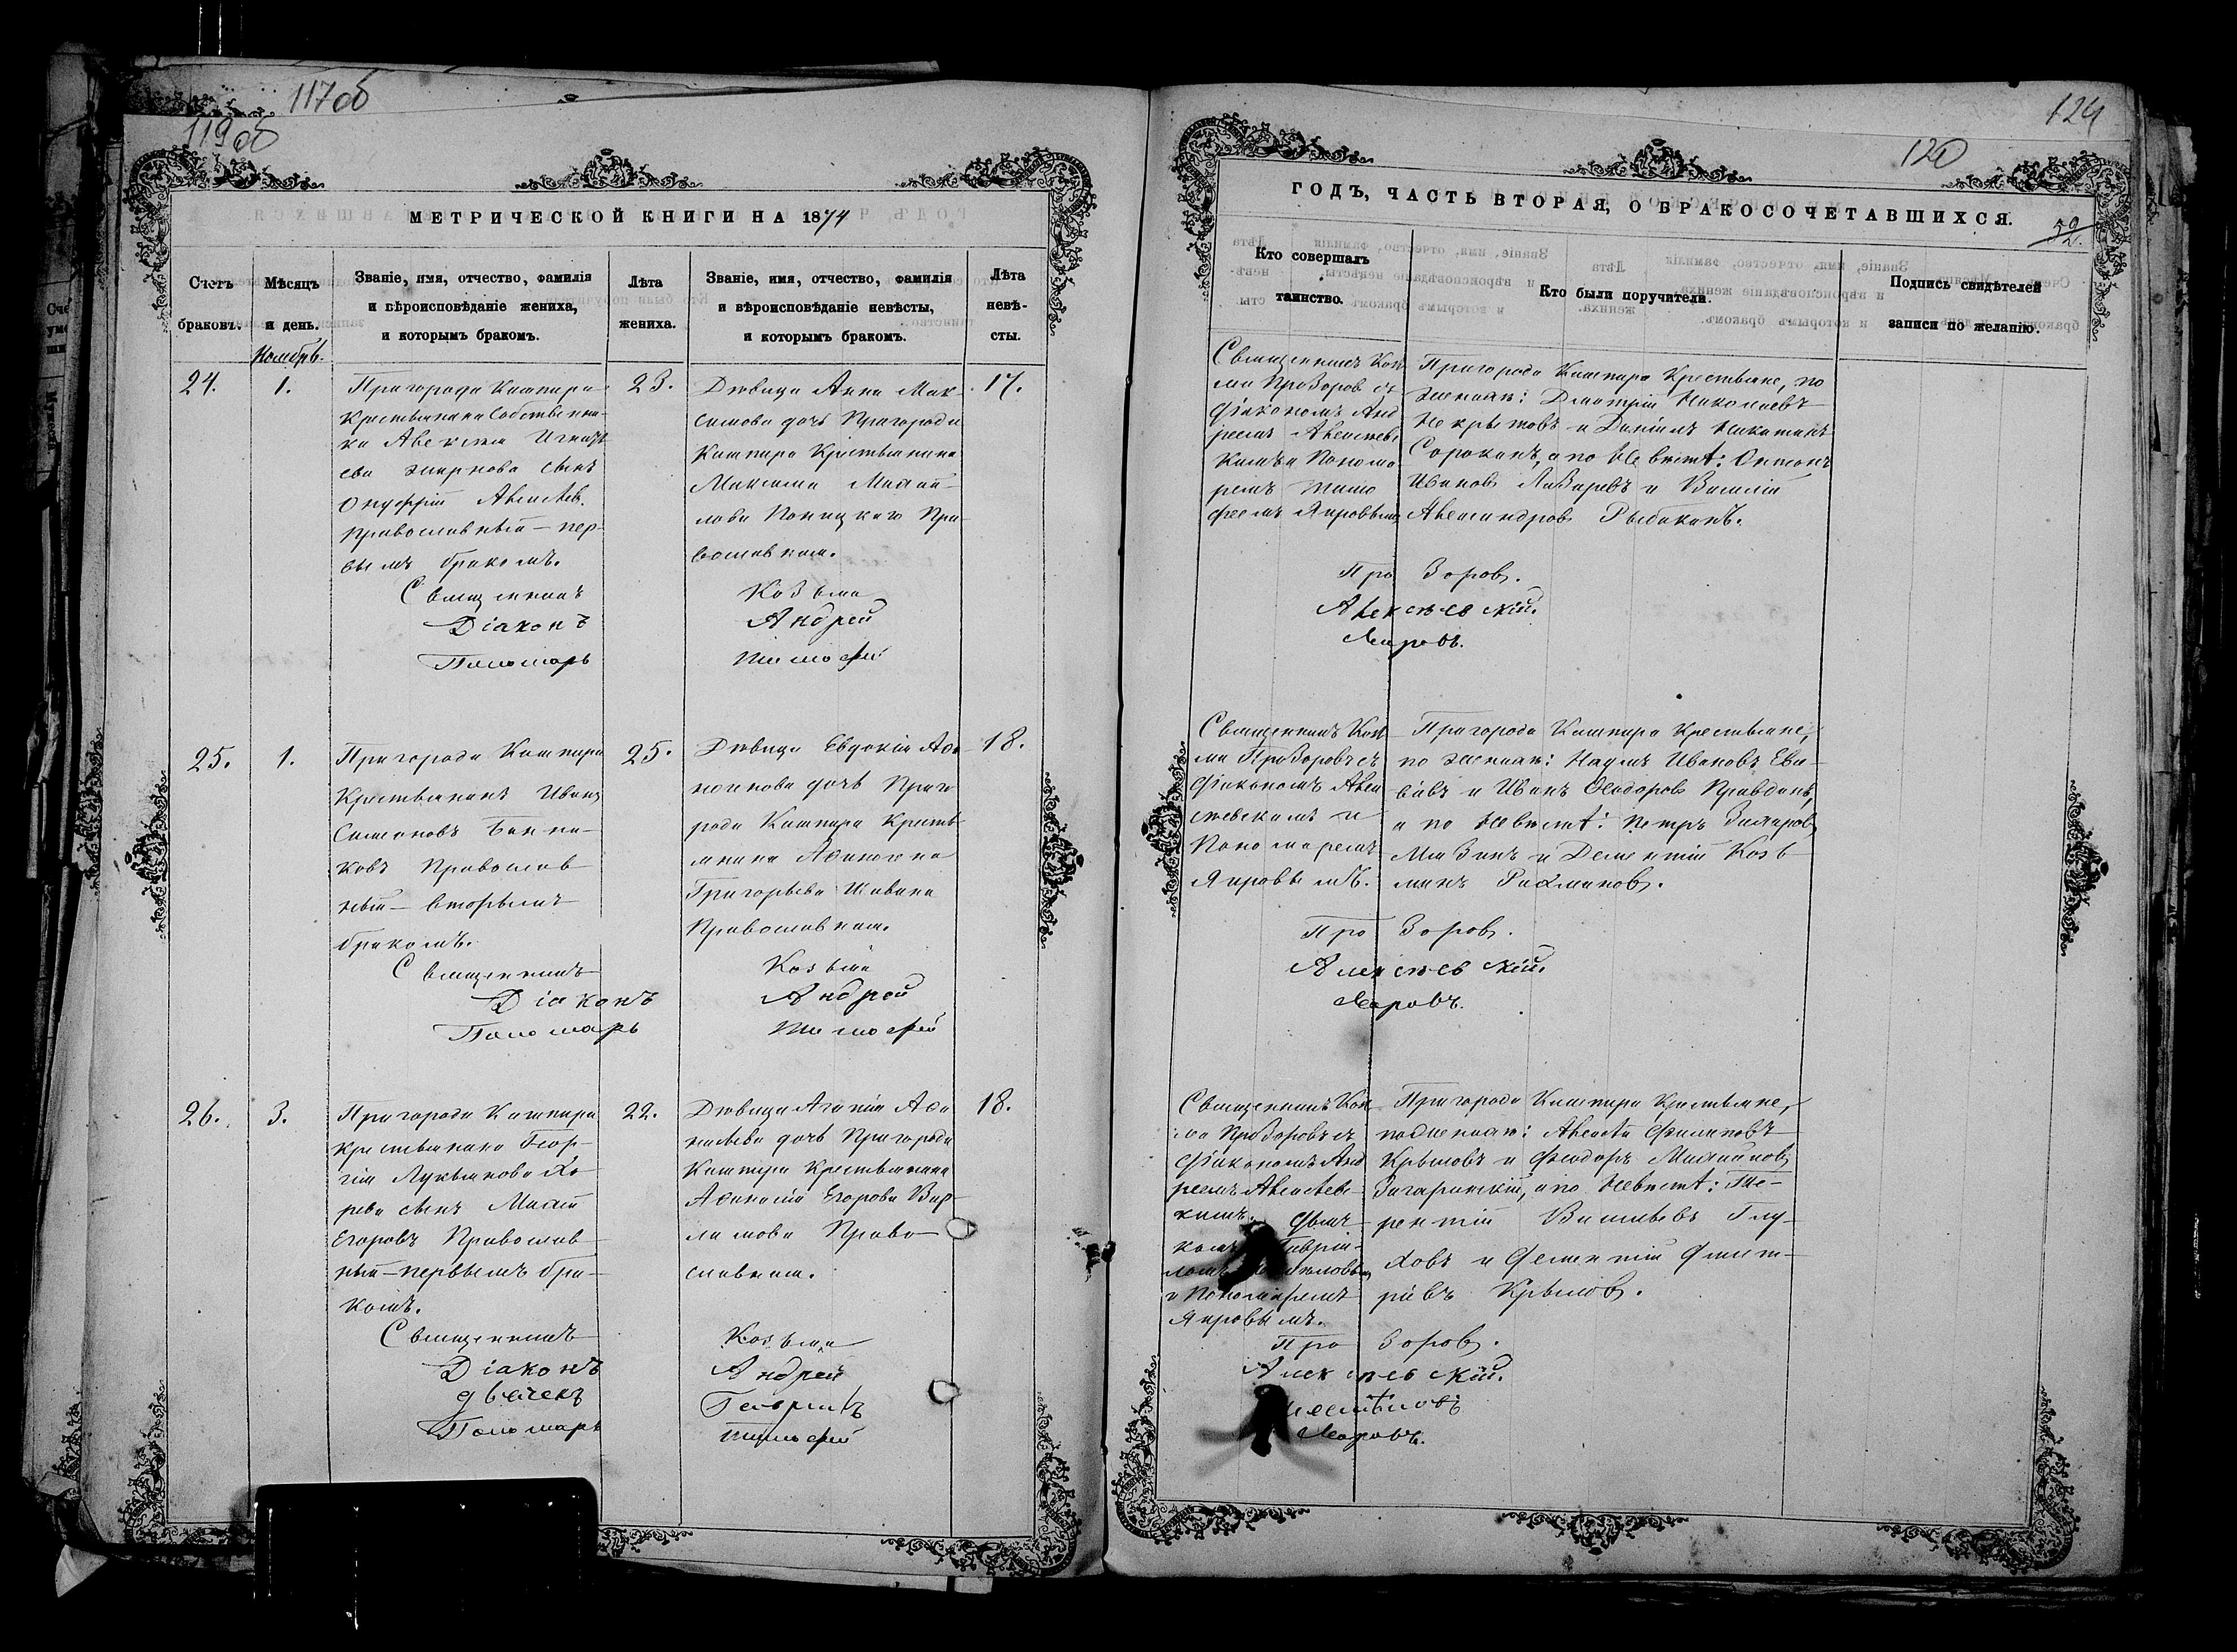 117об
119об
МЕТРИЧЕСКОЙ КНИГИ НА 1874
Счетъ браковъ.
Мѣсяцъ и день.
Званіе, имя, отчество, фамилія и вѣроисповѣданіе жениха, и которымъ бракомъ.
Лѣта жениха.
Званіе, имя, отчество, фамилія и вѣроисповѣданіе невѣсты, и которымъ бракомъ.
Лѣта невѣ-
сты.
Ноябрь.
24.
1.
Пригорода Кашпира
Крестьянина Собственни-
ка Алексѣя Игнать
ева Жирнова сынъ
Онуфрій Алексѣев.
Православный – пер-
вымъ бракомъ.
23.
Дѣвица Анна Мак-
симова дочь Пригорода
Кашпира Крестьянина
Максима Михай-
лова Пра-
вославная.
17.
Священникъ Козьма
Діаконъ Андрей
Пономарь Тимофей
25.
1.
Пригорода Кашпира
Крестьянинъ Иванъ
Симоновъ
ковъ Православ
ный – вторымъ
бракомъ.
25.
Дѣвица Евдокія Аѳи-
ногенова дочь Приго
рода Кашпира Кресть-
янина Аѳиногена
Григорьева
Православная.
18.
Священникъ Козьма
Діаконъ Андрей
Пономарь Тимофей
26.
3.
Пригорода Кашпира
Крестьянина Геор-
гія Лукьянова Хо
рева сынъ
Егоровъ Православ
ный – первымъ бра-
комъ.
22.
Дѣвица Агапія Аѳа
насьева дочь Пригорода
Кашпира Крестьянина
Аѳанасія Егорова Вар-
ламова Право
славная.
18.
Священникъ Козьма
Діаконъ Андрей
Дьячекъ Гавріилъ
Пономарь Тимофей
124
120
52.
ГОДЪ, ЧАСТЬ ВТОРАЯ, О БРАКОСОЧЕТАВШИХСЯ.
Кто совершалъ таинство.
Кто были поручители.
Подпись свидѣтелей записи по желанію.
Священникъ Козь
ма Прозоров съ
Діакономъ Анд
реемъ Алексѣевс
кимъ и Понома
ремъ Тимо
феемъ Яировымъ
Пригорода Кашпира Крестьяне, по
женихѣ: Дмитрій Николаевъ
Некрытовъ и Данилъ Никитинъ
Сорокинъ, а по Невѣстѣ: Антонъ
Иванов Лазаревъ и Василій
Александров Рыбакинъ.
Прозоров.
Алексѣевскій.
Яировъ.
Священникъ Козь
ма Прозоровъ съ
Діакономъ Алек
сѣевскимъ и
Пономаремъ
Яировымъ.
Пригорода Кашпира Крестьяне,
по женихѣ: Наумъ Ивановъ
и Иванъ Ѳеодоров Правдинъ,
а по Невѣстѣ: Петръ
и Дементій Козь
минъ Рахманов.
Прозоров.
Алексѣевскій.
Яировъ.
Священникъ Козь
ма Прозоровъ съ
Діакономъ Анд
реемъ Алексѣевс-
кимъ, Дьяч-
комъ Гавріи-
ломъ
и Пономаремъ
Яировымъ.
Пригорода Кашпира Крестьяне,
по женихѣ: Алексѣй Филиповъ
Крыловъ и Феодоръ Михайлов
Загаринскій, а по Невѣстѣ: Те-
рентій Васильевъ Глу-
ховъ и Дементій Дмит-
ріевъ Крылов.
Прозоров.
Алексѣевскій.
Яировъ.